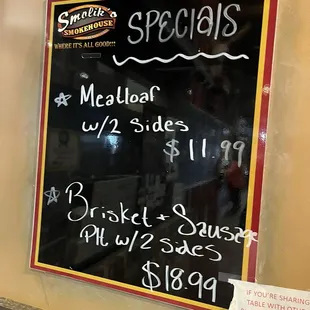 Smolik's
SMOKEHOUSE
WHERE IT'S ALL GOOD!!!
SPECIALS
Meatloaf
w/2 Sides
$11.99
Brisket + Sausage
Plt w/2 sides
$18.99
IF YOU'RE SHARING
TABLE WITH